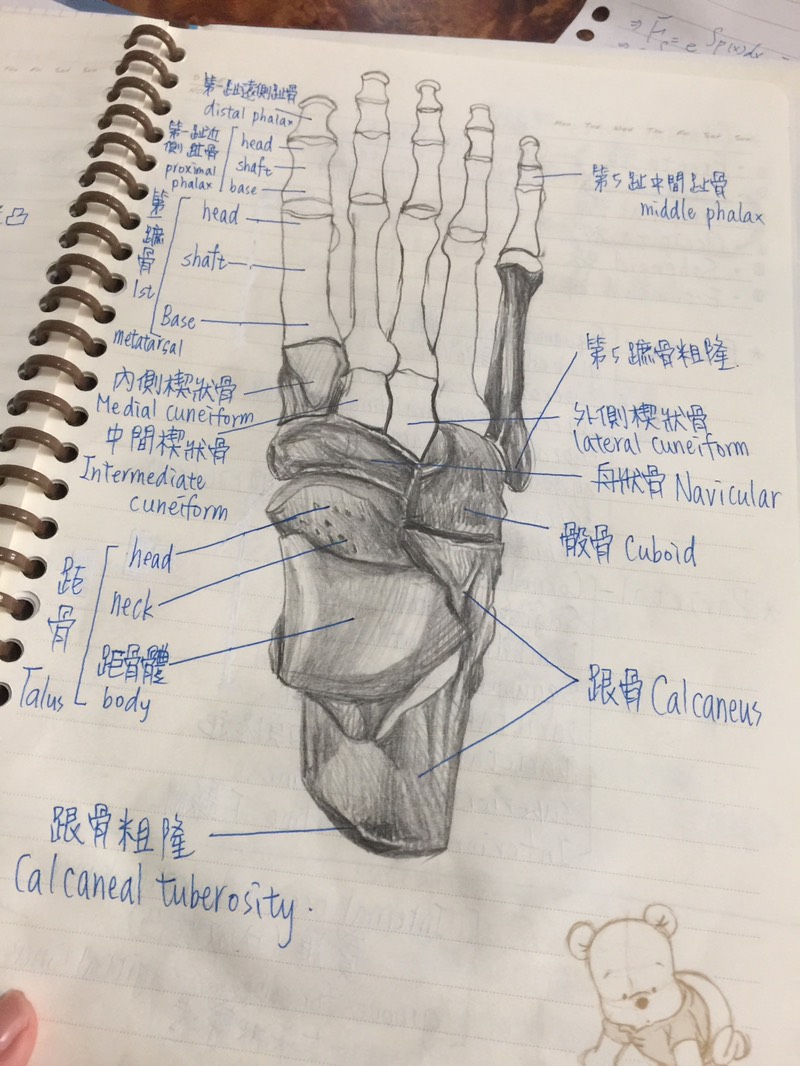 第一趾遠側趾骨
distal phalax
第一趾近
側趾骨
proximal
phalax
head
shaft
base
第一蹠骨
1st
metatarsal
head
shaft
Base
內側楔狀骨
Medial cuneiform
中間楔狀骨
Intermediate
cuneiform
距骨
Talus
head
neck
距骨體
body
跟骨粗隆
Calcaneal tuberosity.
第5趾中間趾骨
middle phalax
第5蹠骨粗隆
外側楔狀骨
lateral cuneiform
舟狀骨 Navicular
骰骨 Cuboid
跟骨 Calcaneus
Mon Tue Wed Thu Fri Sat Sun